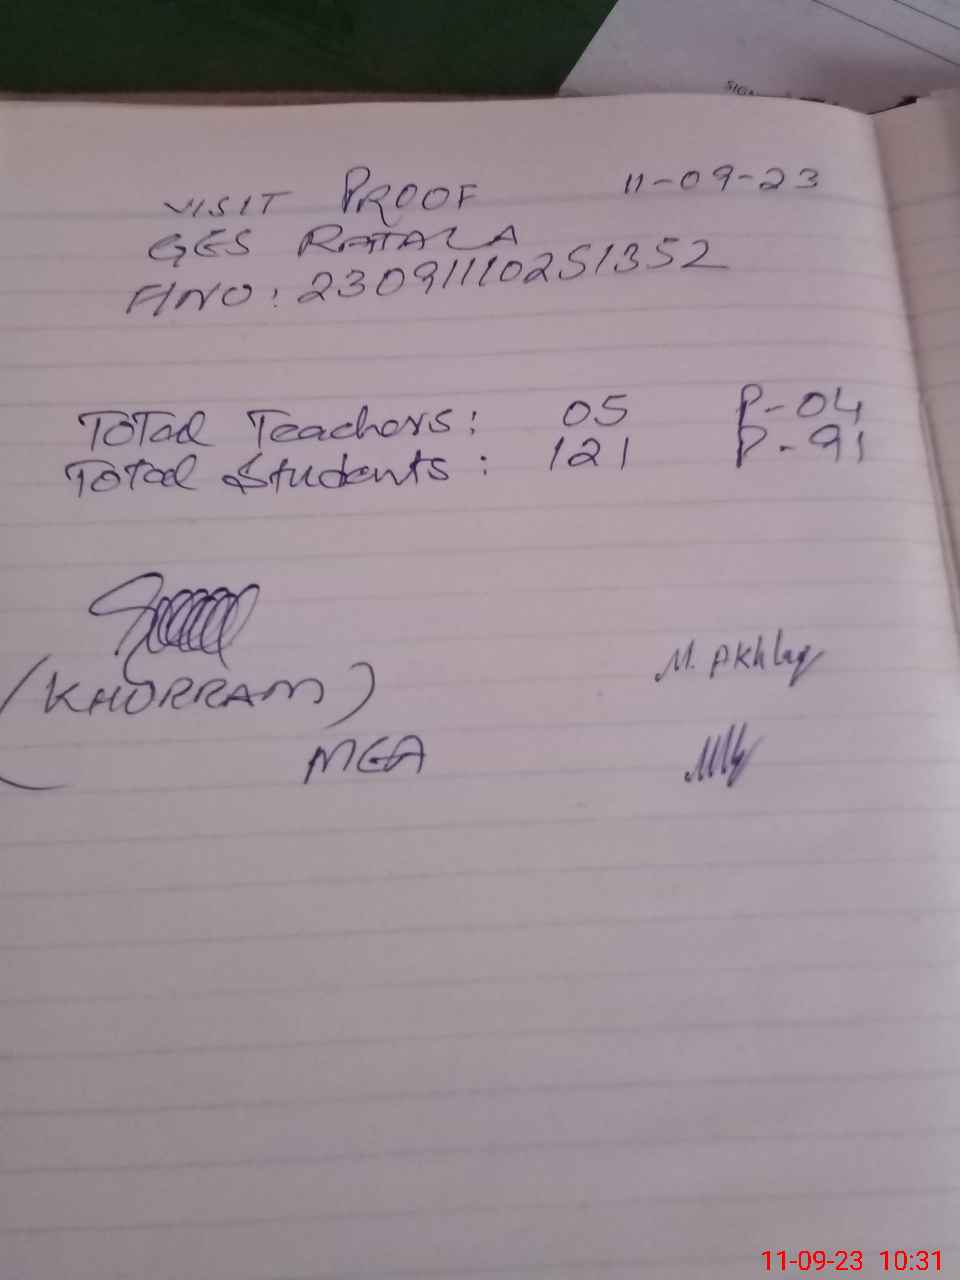 VISIT PROOF 11-09-23
GES RATALA
F/NO: 23091110251352
Total Teachers: 05 P-04
Total Students: 121 P-91
(KHORRAM) M. Akhlaq
MEA
11-09-23 10:31